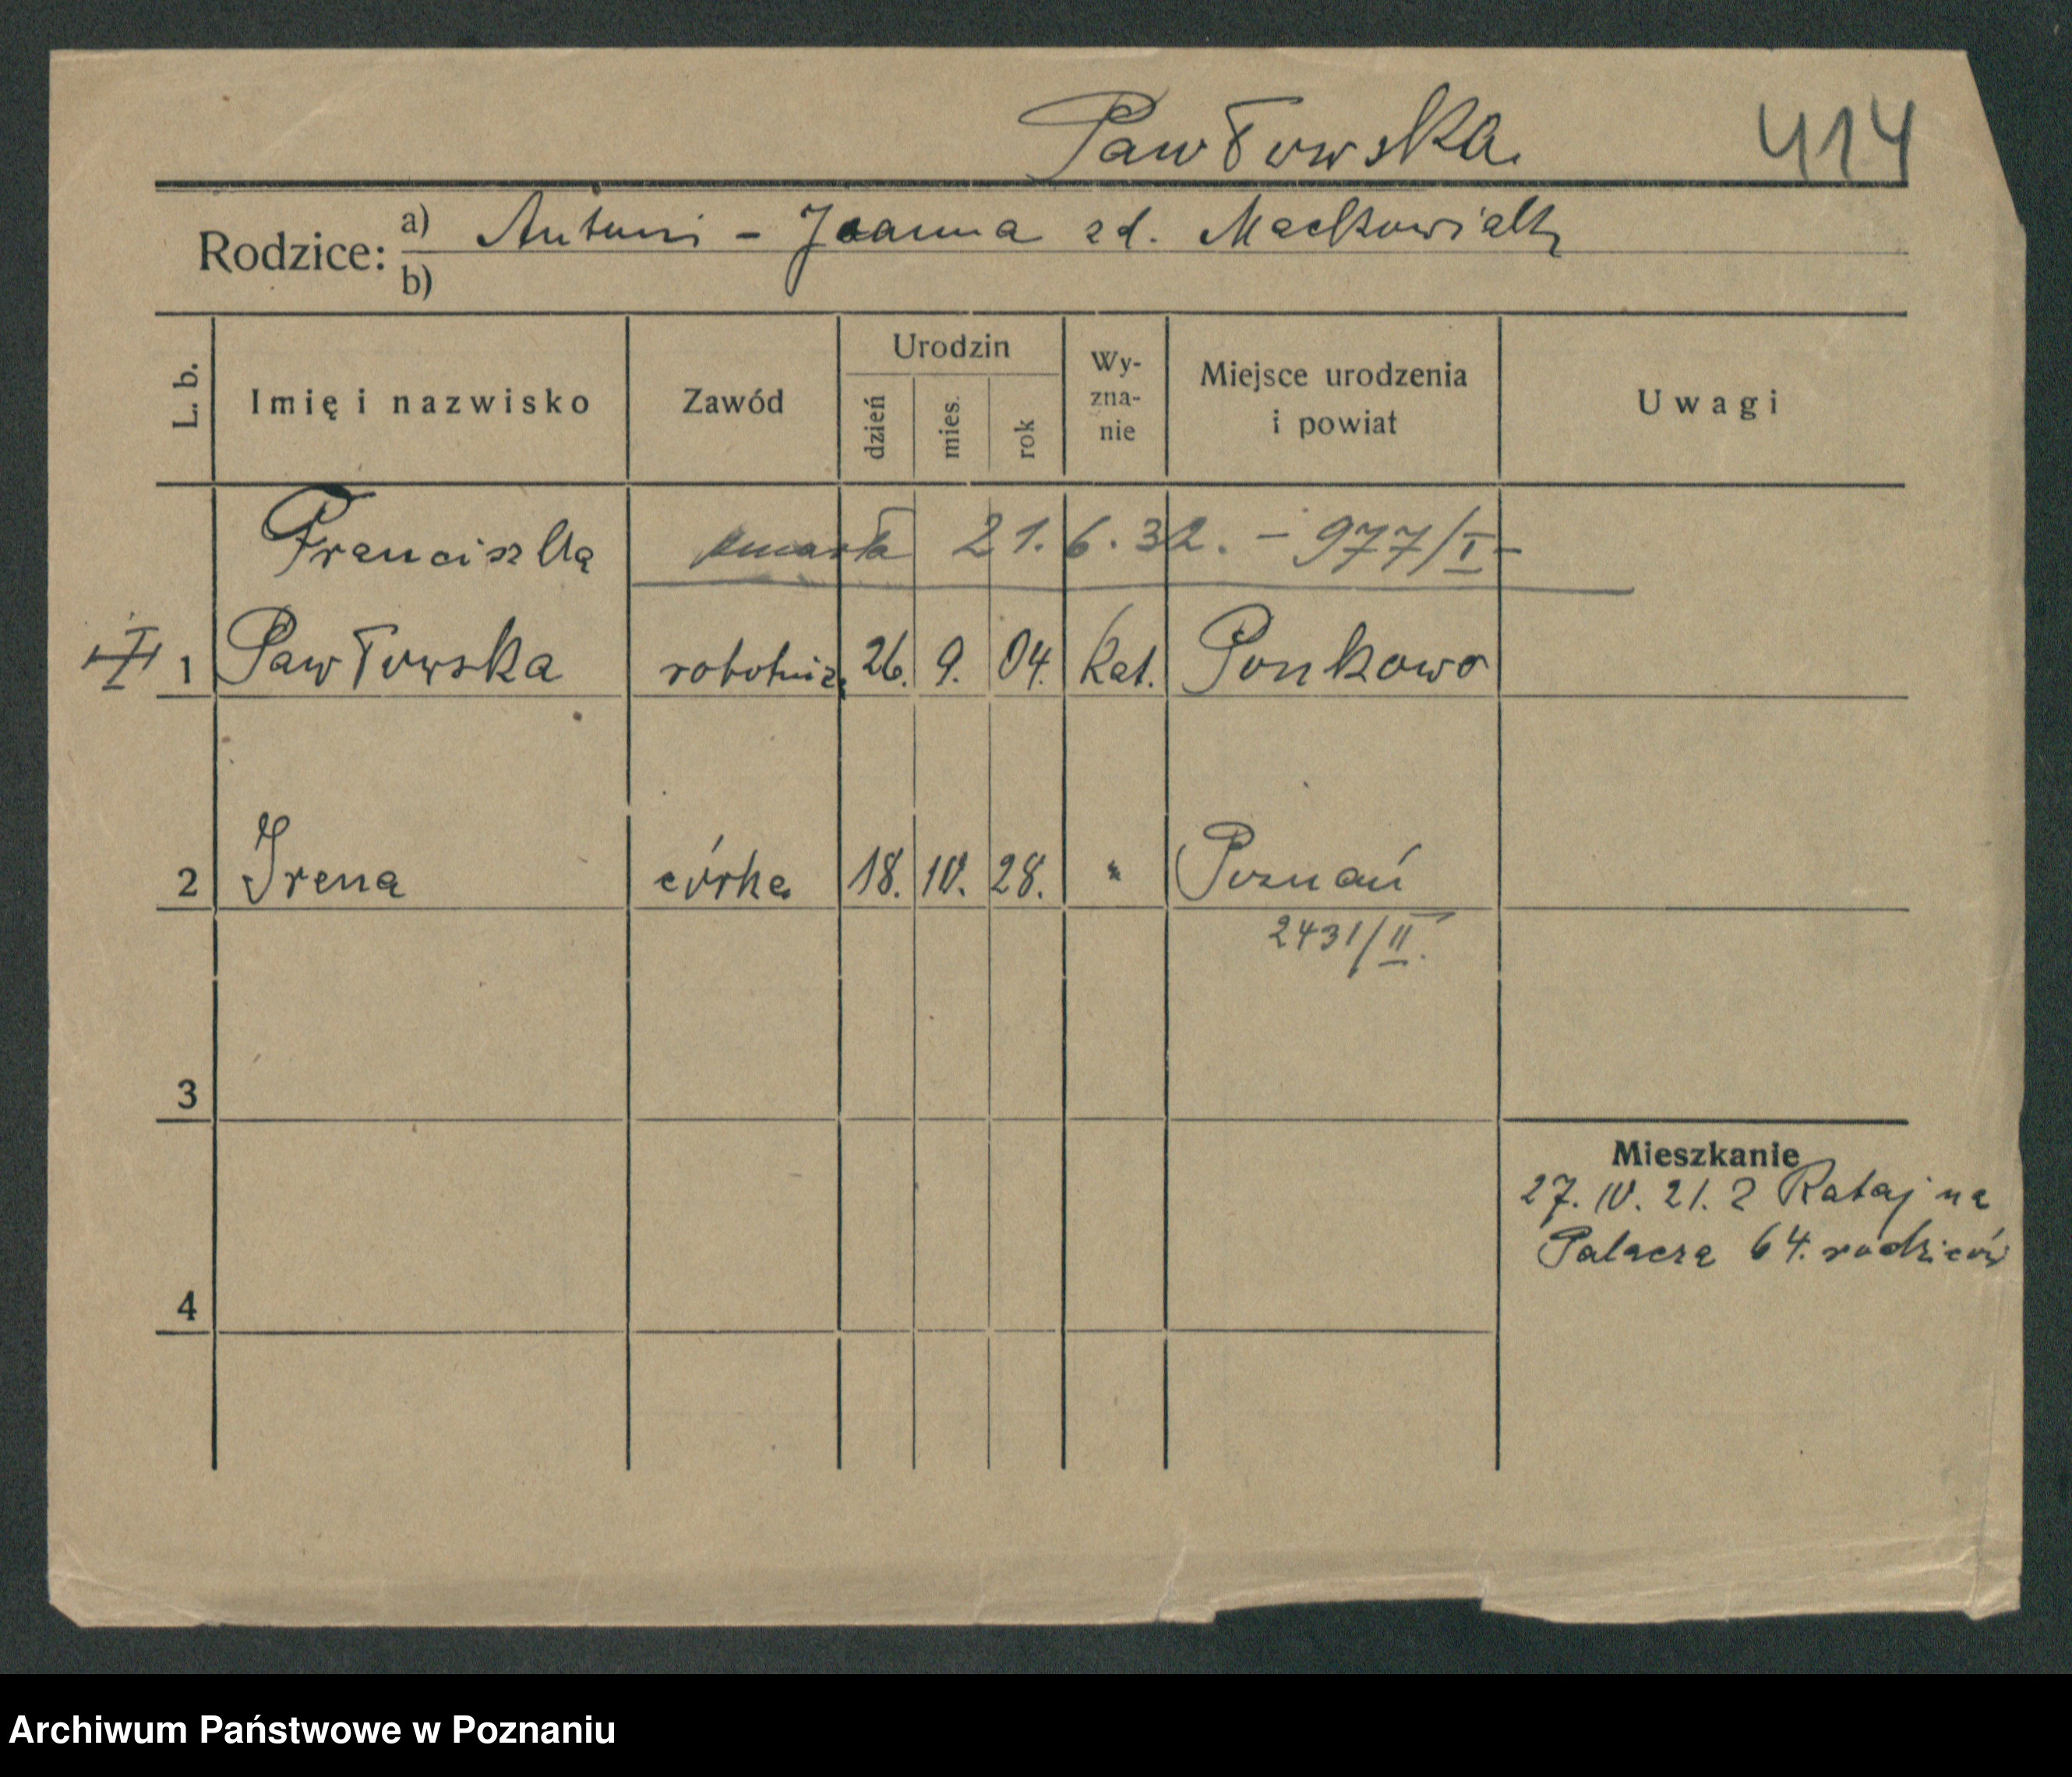 Pawłowska 414
Rodzice: a) Antoni - Joanna zd. Maćkowiak
b)
L. b. Imię i nazwisko Zawód Urodzin dzień mies. rok Wy-zna-nie Miejsce urodzenia i powiat Uwagi
Franciszka zmarła 21.6.32. - 977/I -
1 Pawłowska robotnica 26. 9. 04. kat. Ponkowo
2 Irena córka 18. IV. 28. " Poznań
2431/II.
3
Mieszkanie
27. IV. 21. z Rataj na
Palacza 64. rodziców
4
Archiwum Państwowe w Poznaniu